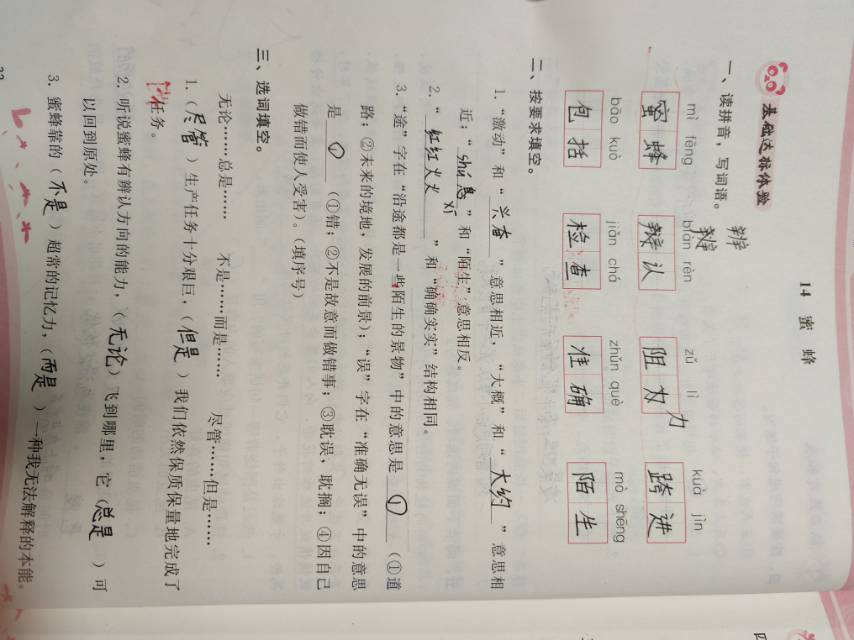 14 蜜蜂
基础达标体验
一、读拼音，写词语。
mì fēng biàn rèn zǔ lì kuà jìn
蜜蜂 辨认 阻力 跨进
辨
力
bāo kuò jiǎn chá zhǔn què mò shēng
包括 检查 准确 陌生
二、按要求填空。
1. “激动”和“兴奋”意思相近，“大概”和“大约”意思相
近；“熟悉”和“陌生”意思相反。
xī
2. “红红火火”和“确确实实”结构相同。
3. “途”字在“沿途都是一些陌生的景物”中的意思是①（①道
路；②未来的境地，发展的前景）；“误”字在“准确无误”中的意思
是①（①错；②不是故意而做错事；③耽误，耽搁；④因自己
做错而使人受害）。（填序号）
三、选词填空。
无论……总是…… 不是……而是…… 尽管……但是……
1.（尽管）生产任务十分艰巨，（但是）我们依然保质保量地完成了
任务。
2. 听说蜜蜂有辨认方向的能力，（无论）飞到哪里，它（总是）可
以回到原处。
3. 蜜蜂靠的（不是）超常的记忆力，（而是）一种我无法解释的本能。